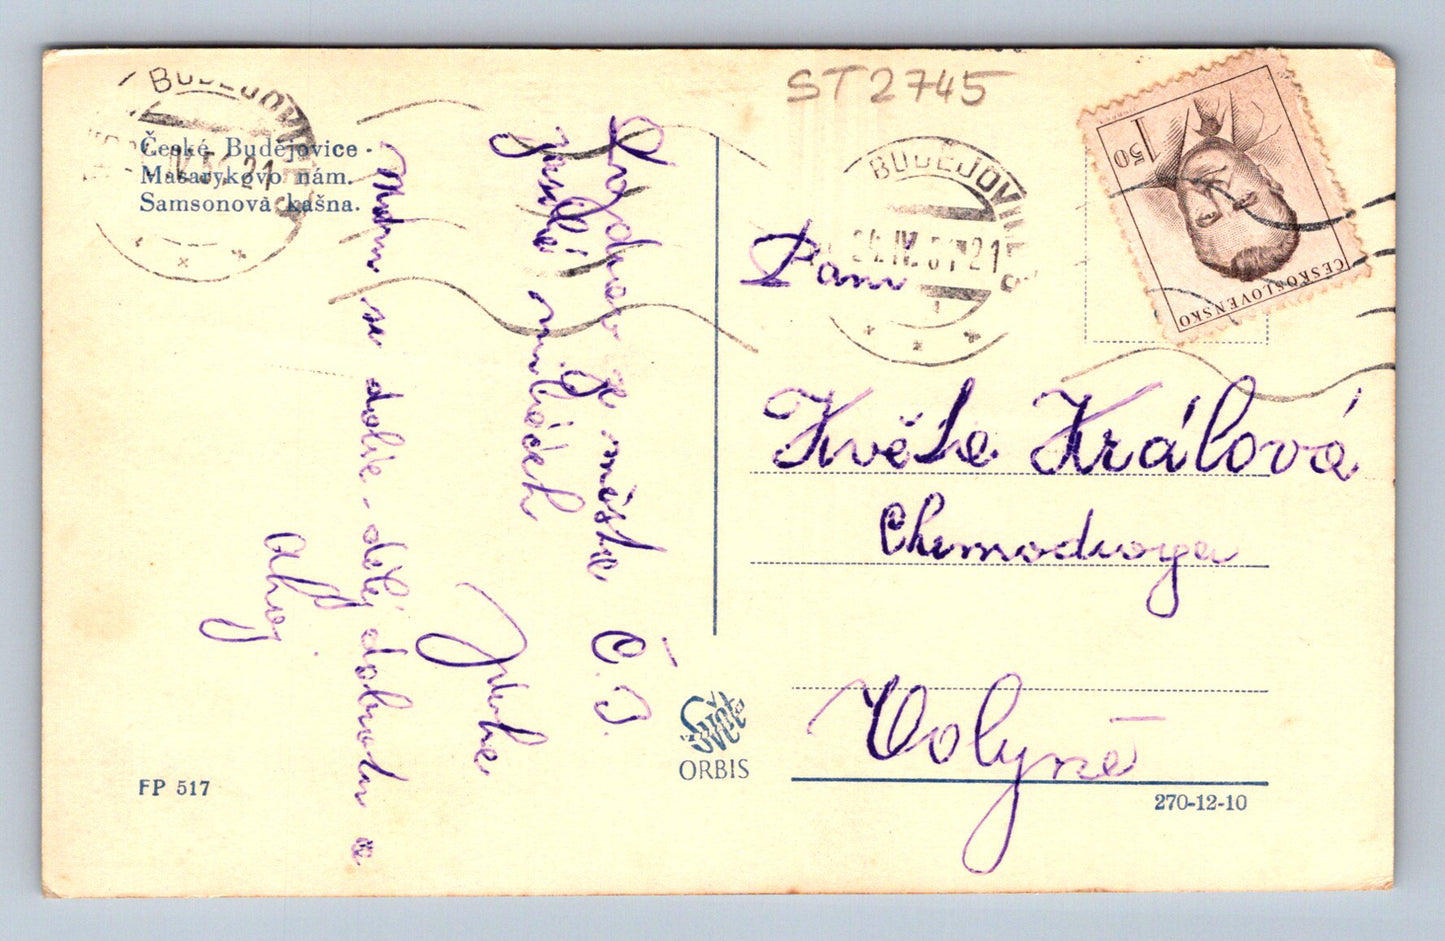 ST2745
BUDĚJOVICE
České Budějovice -
Masarykovo nám.
Samsonova kašna.
Pozdrav z města Č. B.
zasílá
Jituše
Mám se dobře - dělej dobrotu a
ahoj
BUDĚJOVICE
24.IV.51 21
1 50
ČESKOSLOVENSKO
Paní
Květa Králová
Volyně
Svět
ORBIS
FP 517
270-12-10